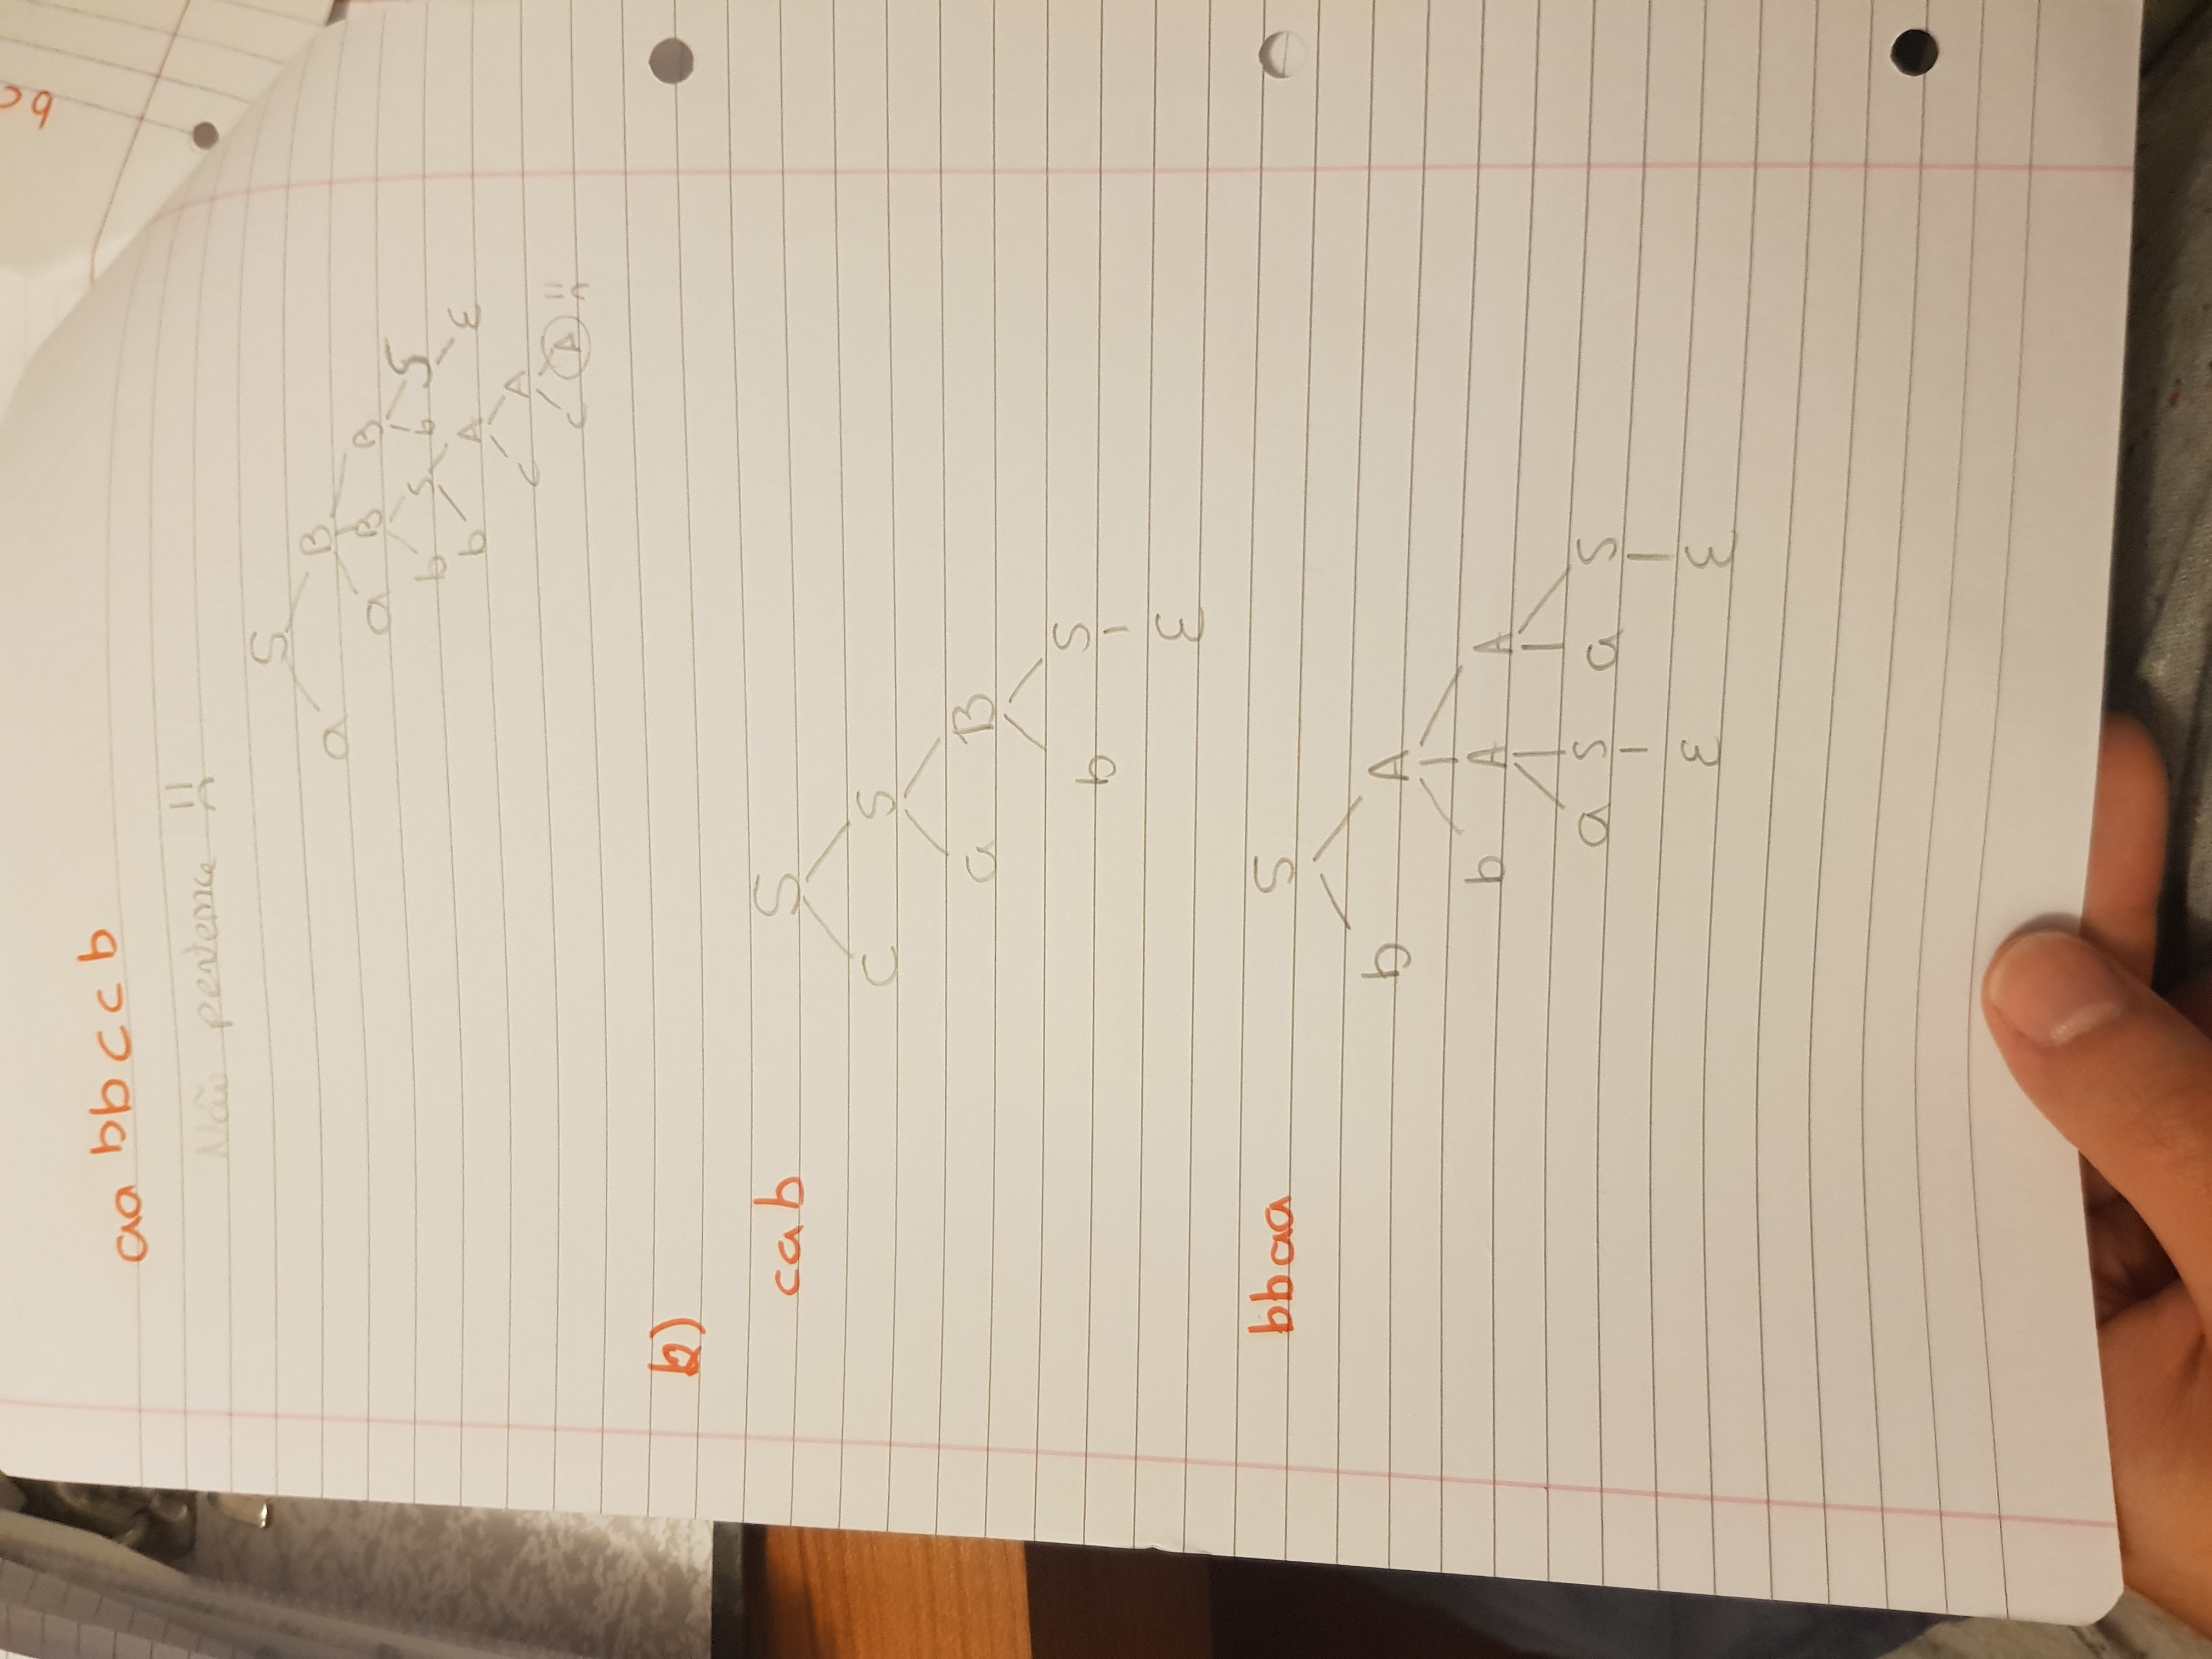 aa bbccb
Não pertence
S
a B
a B B
b S b S
b A ε
c A
c A
b)
cab
S
C S
a B
b S
ε
bbaa
S
b A
b A A
a S a S
ε ε